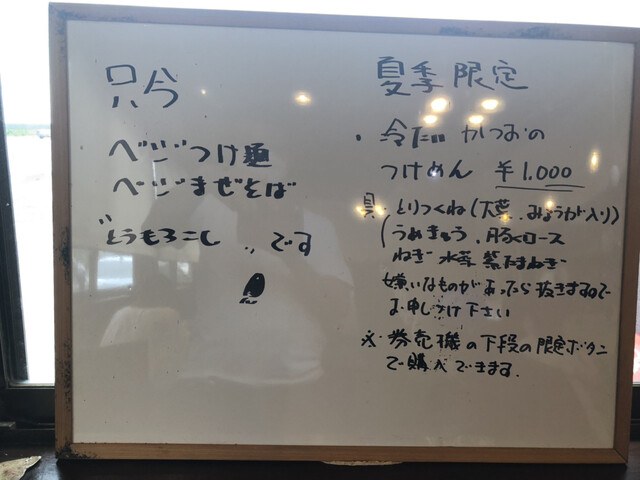 只今
ベジつけ麺
ベジまぜそば
"とうもろこし〟です
夏季限定
・冷だしかつおの
つけめん ¥1.000
具 とりつくね(大葉、みょうが入り)
うめきゅう、豚ロース
ねぎ 水菜 紫たまねぎ
嫌いなものがあったら抜きますので
お申しつけ下さい
※券売機の下段の限定ボタン
で購入できます。